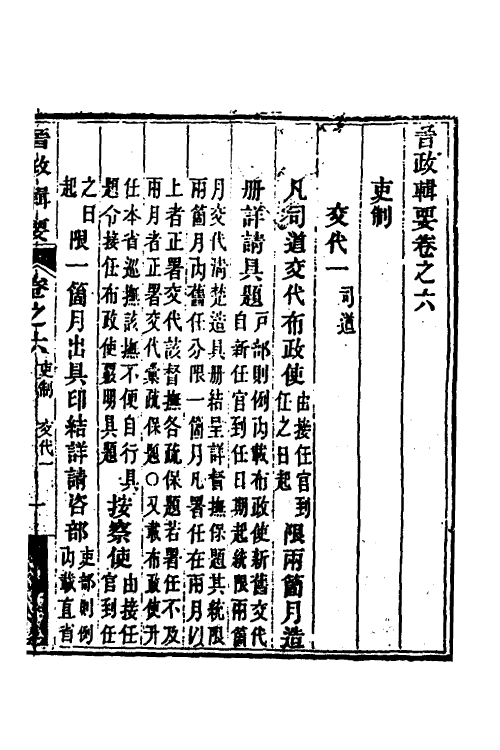 晉政輯要卷之六
吏制
交代一 司道
凡司道交代布政使由接任官到任之日起限兩箇月造
册詳請具題戶部則例內載布政使新舊交代自新任官到任日期起統限兩箇
月交代清楚造具册結呈詳督撫保題其統限兩箇月內舊任分限一箇月凡署任在兩月以
上者正署交代該督撫各疏保題若署任不及兩月者正署交代彙疏保題〇又載布政使升
任本省巡撫該撫不便自行具題令接任布政使聲明具題按察使由接任官到任
之日起限一箇月出具印結詳請咨部吏部則例內載直省
晉政輯要 卷之六 吏制 交代一 一